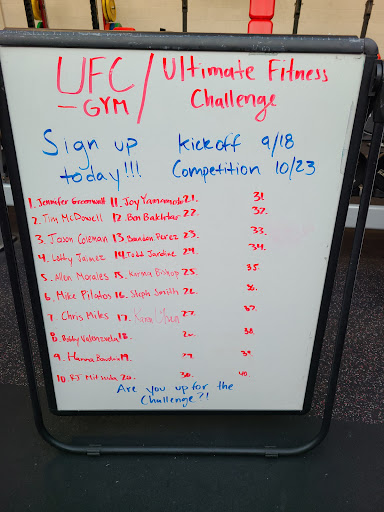 UFC / Ultimate Fitness
- GYM Challenge
Sign up kickoff 9/18
today!!! Competition 10/23
1. Jennifer 11. Joy Yamamoto 21. 31.
2. Tim McDowell 12. Ben Bakhtiar 22. 32.
3. Jason Coleman 13 Brandon Perez 23. 33.
4. Letty Jaimez 14. Todd Jardine 24. 34.
5. Allen Morales 15. Karma Bishop 25. 35.
6. Mike Pilatos 16. Steph Smith 26. 36.
7. Chris Miks 17. Kana 27. 37.
8. Bobby Valenzuela 18. 28. 38.
9. Hanna 19. 29. 39.
10. RJ 20. 30. 40.
Are you up for the
Challenge?!